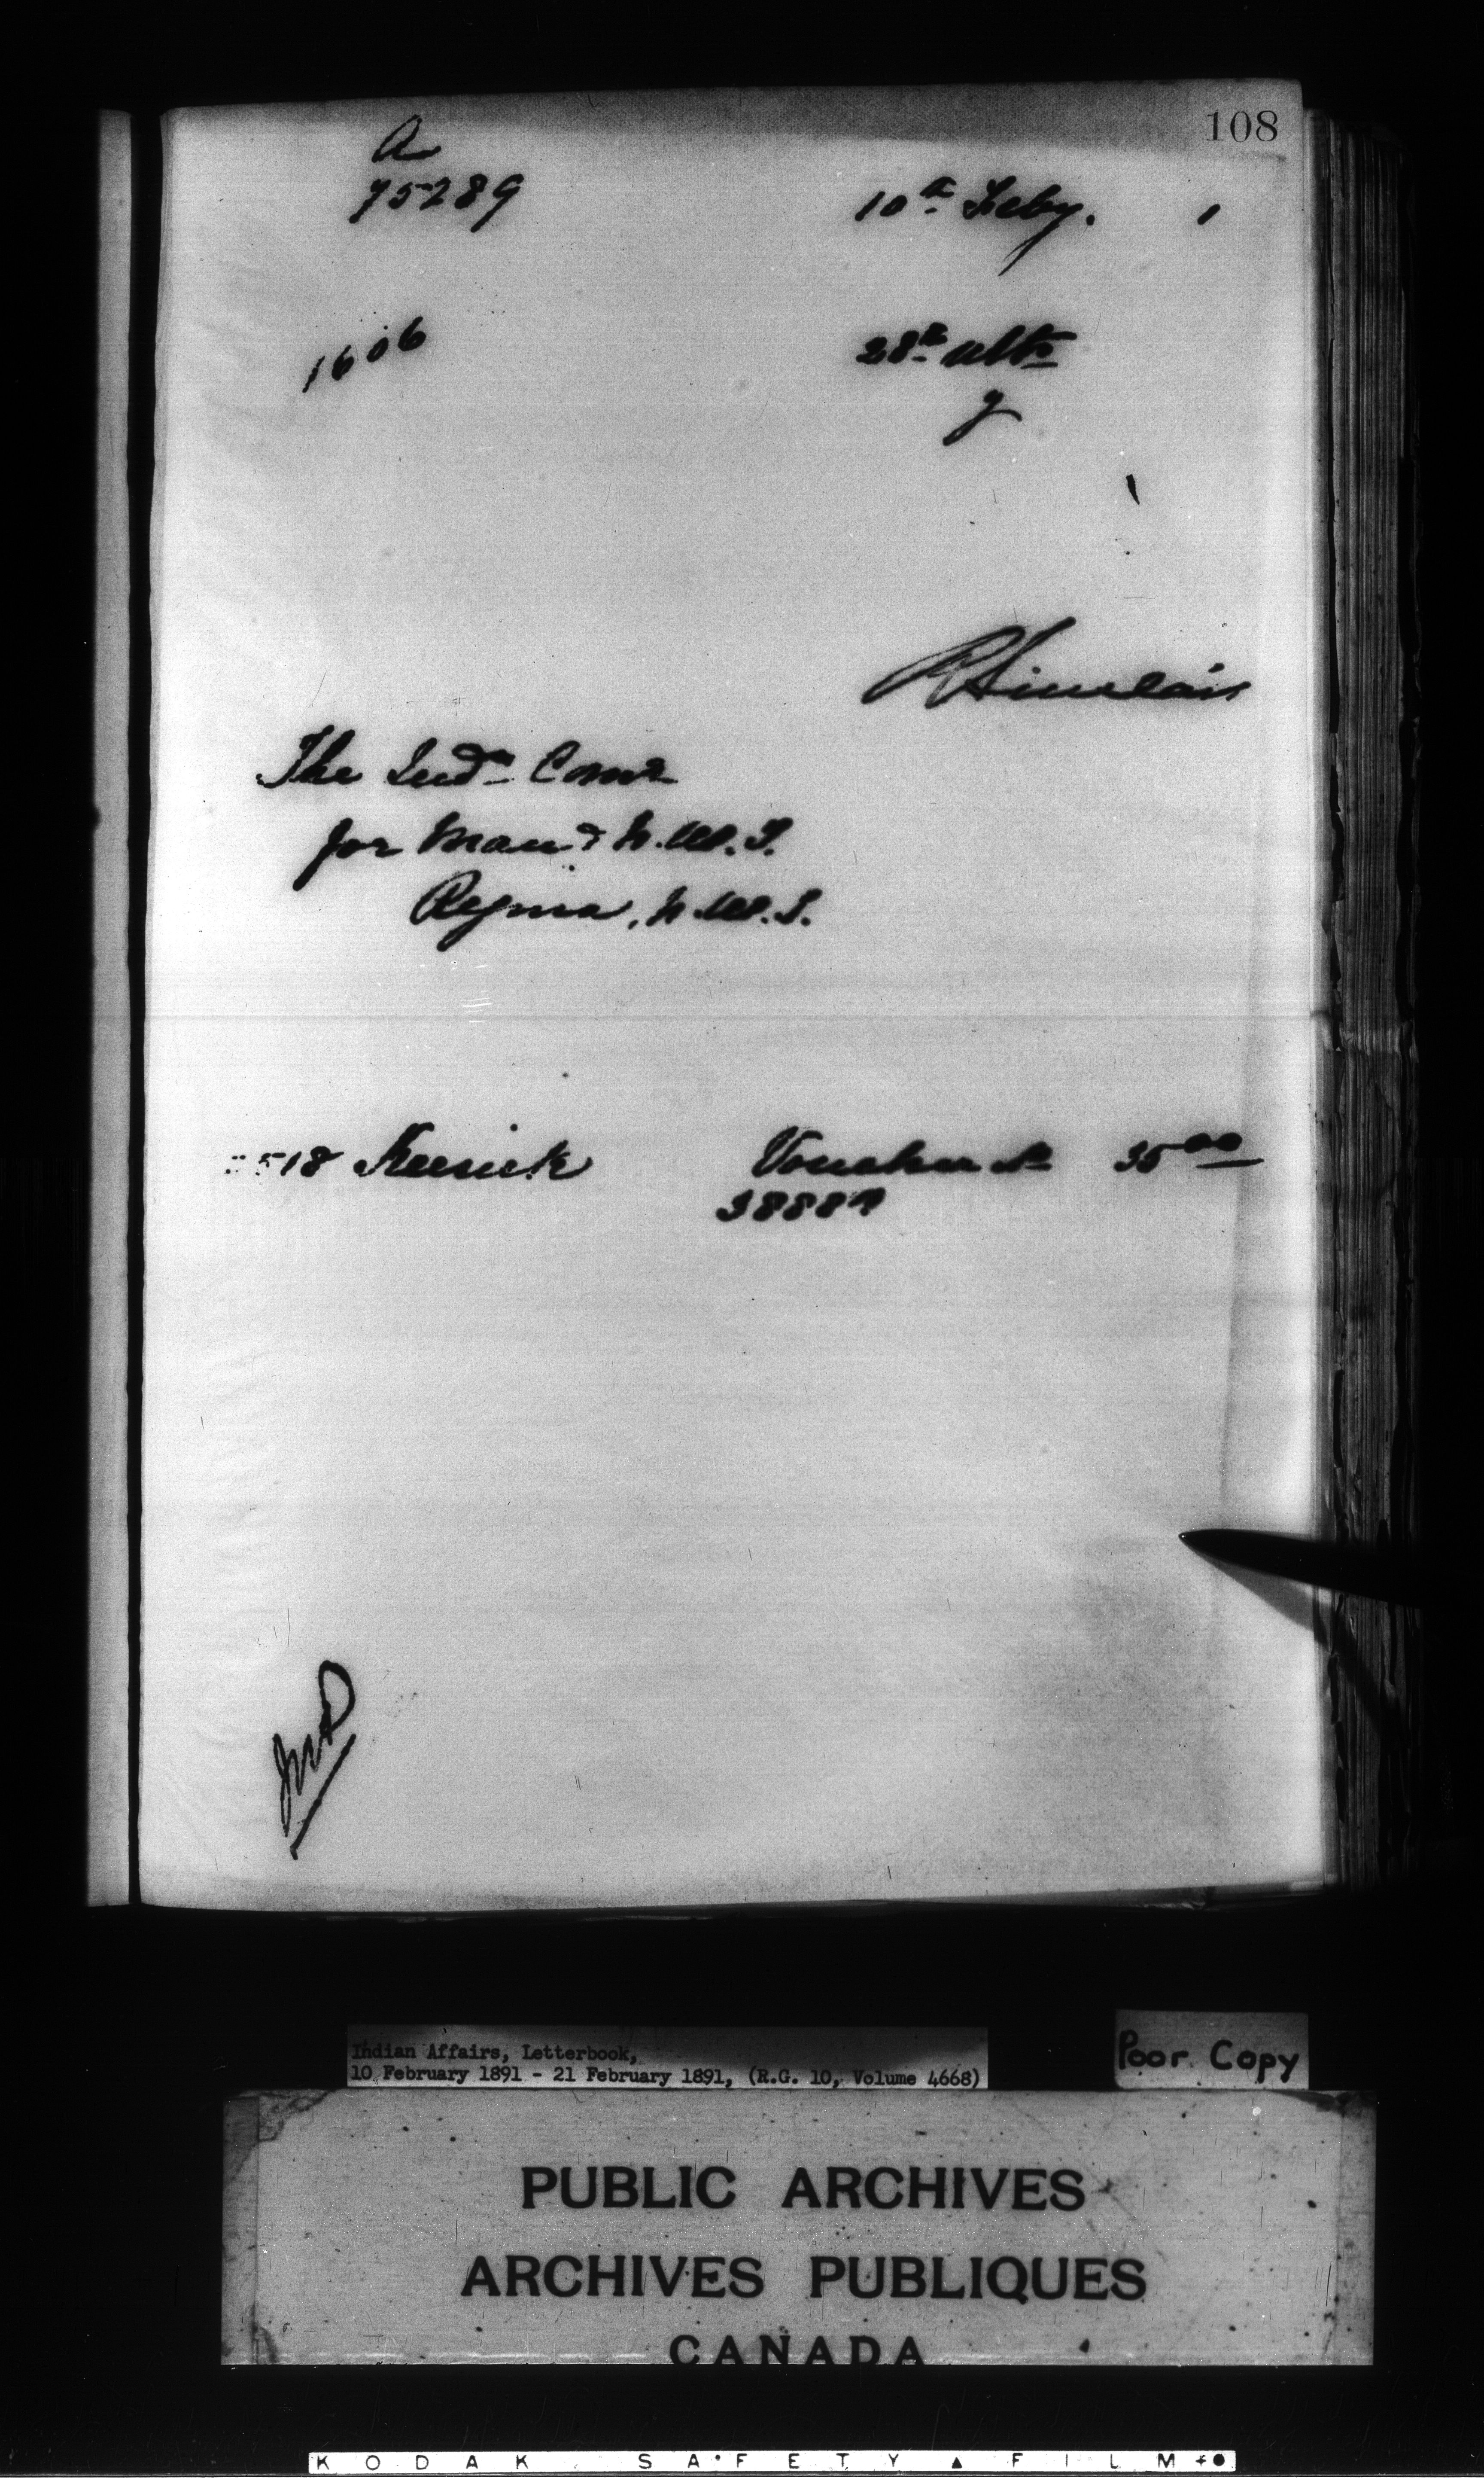 108
A
75289
10th Feby. 1
1606
28th ulto
y
R Sinclair
The Indn Comr
for Man & N.W.T.
Regina, N.W.T.
518 Keesick Voucher No 35 00
38889
Indian Affairs, Letterbook,
10 February 1891 - 21 February 1891, (R.G. 10, Volume 4668)
Poor Copy
PUBLIC ARCHIVES
ARCHIVES PUBLIQUES
CANADA
KODAK SAFETY ▲ FILM